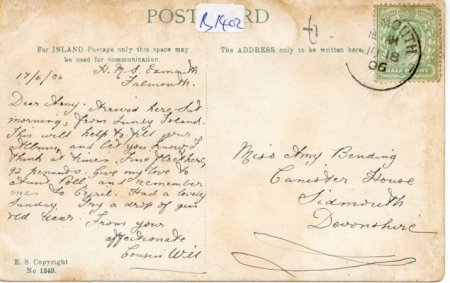 POST CARD
B1402
For INLAND Postage only this space may
be used for communication.
The ADDRESS only to be written here.
MOUTH
AM
18
06
HALFPENNY
17/6/06 H.M.S. Exmouth
Falmouth.
Dear Amy. Arrived here Sat
morning, from Lundy Island.
This will help to fill your
Album, and let you know I
think at times. Fine
92 Give my love to
Aunt Poll, and remember
me to Cyril. Had a lovely
Sunday. Try a drop of gin
old dear. From your
affectionate
Cousin Will
Miss Amy Bending
Canister House
Sidmouth
Devonshire
E. S. Copyright
No. 1249.